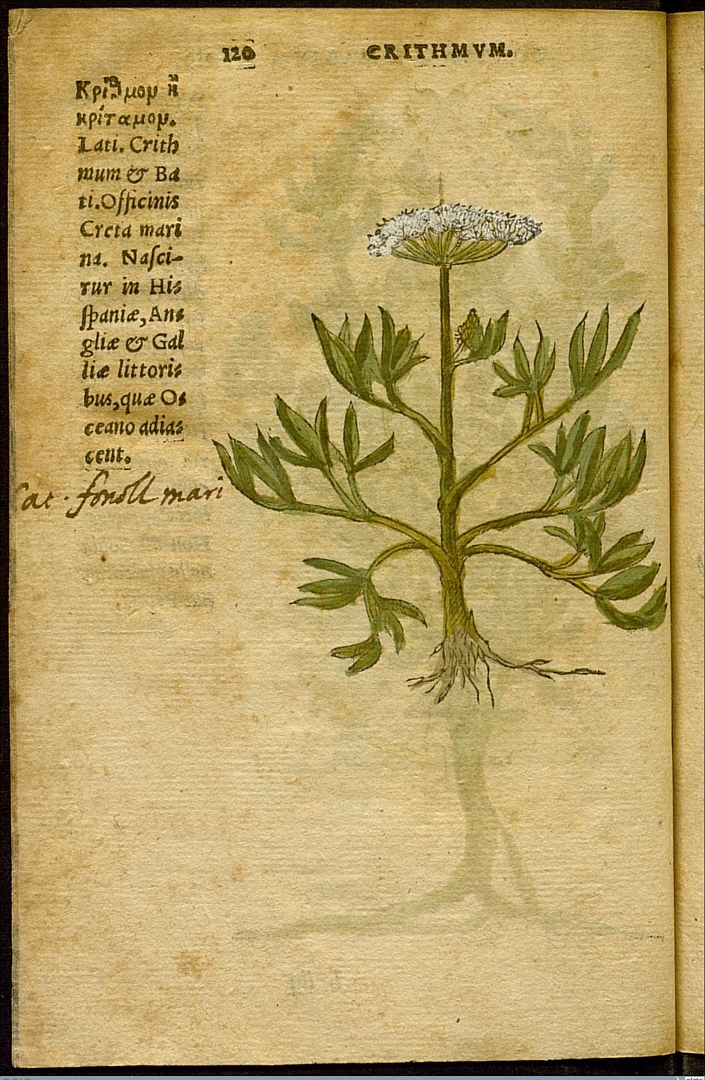 120 CRITHMVM.
Κρίθμομ ἢ
κρίταμομ.
Lati. Crith
mum & Ba
ti. Officinis
Creta mari
na. Naſci-
tur in His
ſpaniæ, Ans
gliæ & Gal
liæ littoris
bus, quæ Os
ceano adias
cent.
Cat. fonoll mari